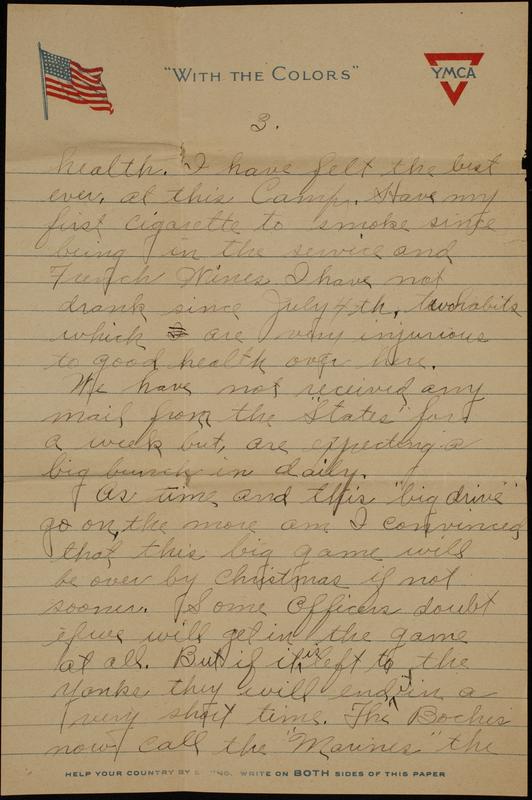 "WITH THE COLORS"
YMCA
3.
health. I have felt the best
ever, at this Camp. Have my
first cigarette to smoke since
being in the service and
French Wines I have not
drank since July 4th, two habits
which are very injurious
to good health over here.
We have not received any
mail from the "States" for
a week but, are expecting a
big bunch in daily.
As time and this "big drive"
go on, the more am I convinced
that this big game will
be over by Christmas if not
sooner. Some Officers doubt
if we will get in the game
at all. But if it is left to the
Yanks they will end it in a
very short time. The Boches
now call the "Marines" the
HELP YOUR COUNTRY BY WRITE ON BOTH SIDES OF THIS PAPER